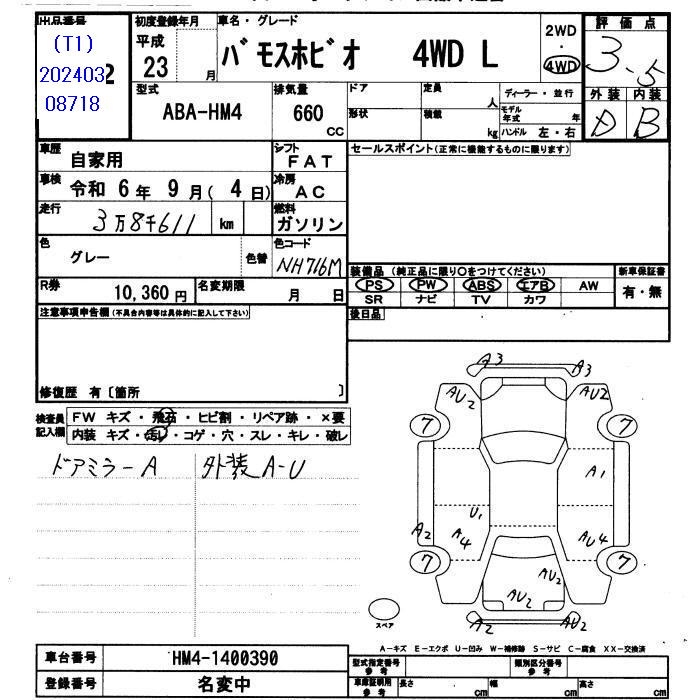 出品番号
(T1)
202403
08718
2
初度登録年月
平成
23 月
車名・グレード
バモスホビオ 4WD L
2WD
・
4WD
評価点
3.5
外装 内装
D B
型式
ABA-HM4
排気量
660
CC
ドア 定員 人
形状 積載 kg
ディーラー・並行
モデル年式 年
ハンドル 左・右
車歴 自家用
シフト FAT
セールスポイント(正常に機能するものに限ります)
車検 令和 6 年 9 月( 4 日)
冷房 AC
走行 3万8千611 km
燃料 ガソリン
色 グレー 色替
色コード NH716M
R券 10,360 円
名変期限 月 日
装備品(純正品に限り○をつけてください)
PS PW ABS エアB AW
SR ナビ TV カワ
新車保証書
有・無
注意事項申告欄(不具合内容等は具体的に記入して下さい)
後日品
修復歴 有〔箇所 〕
検査員記入欄
FW キズ・飛石・ヒビ割・リペア跡・×要
内装 キズ・汚レ・コゲ・穴・スレ・キレ・破レ
ドアミラーA 外装A-U
A3 A3
AU2 AU2
7 7
A1
U1
A2 A4 AU4
7 7
AU2 AU2
A2 AU2
スペア
A-キズ E-エクボ U-凹み W-補修跡 S-サビ C-腐食 XX-交換済
車台番号 HM4-1400390
登録番号 名変中
型式指定番号 参考
類別区分番号 参考
車庫証明用 参考
長さ cm 幅 cm 高さ cm